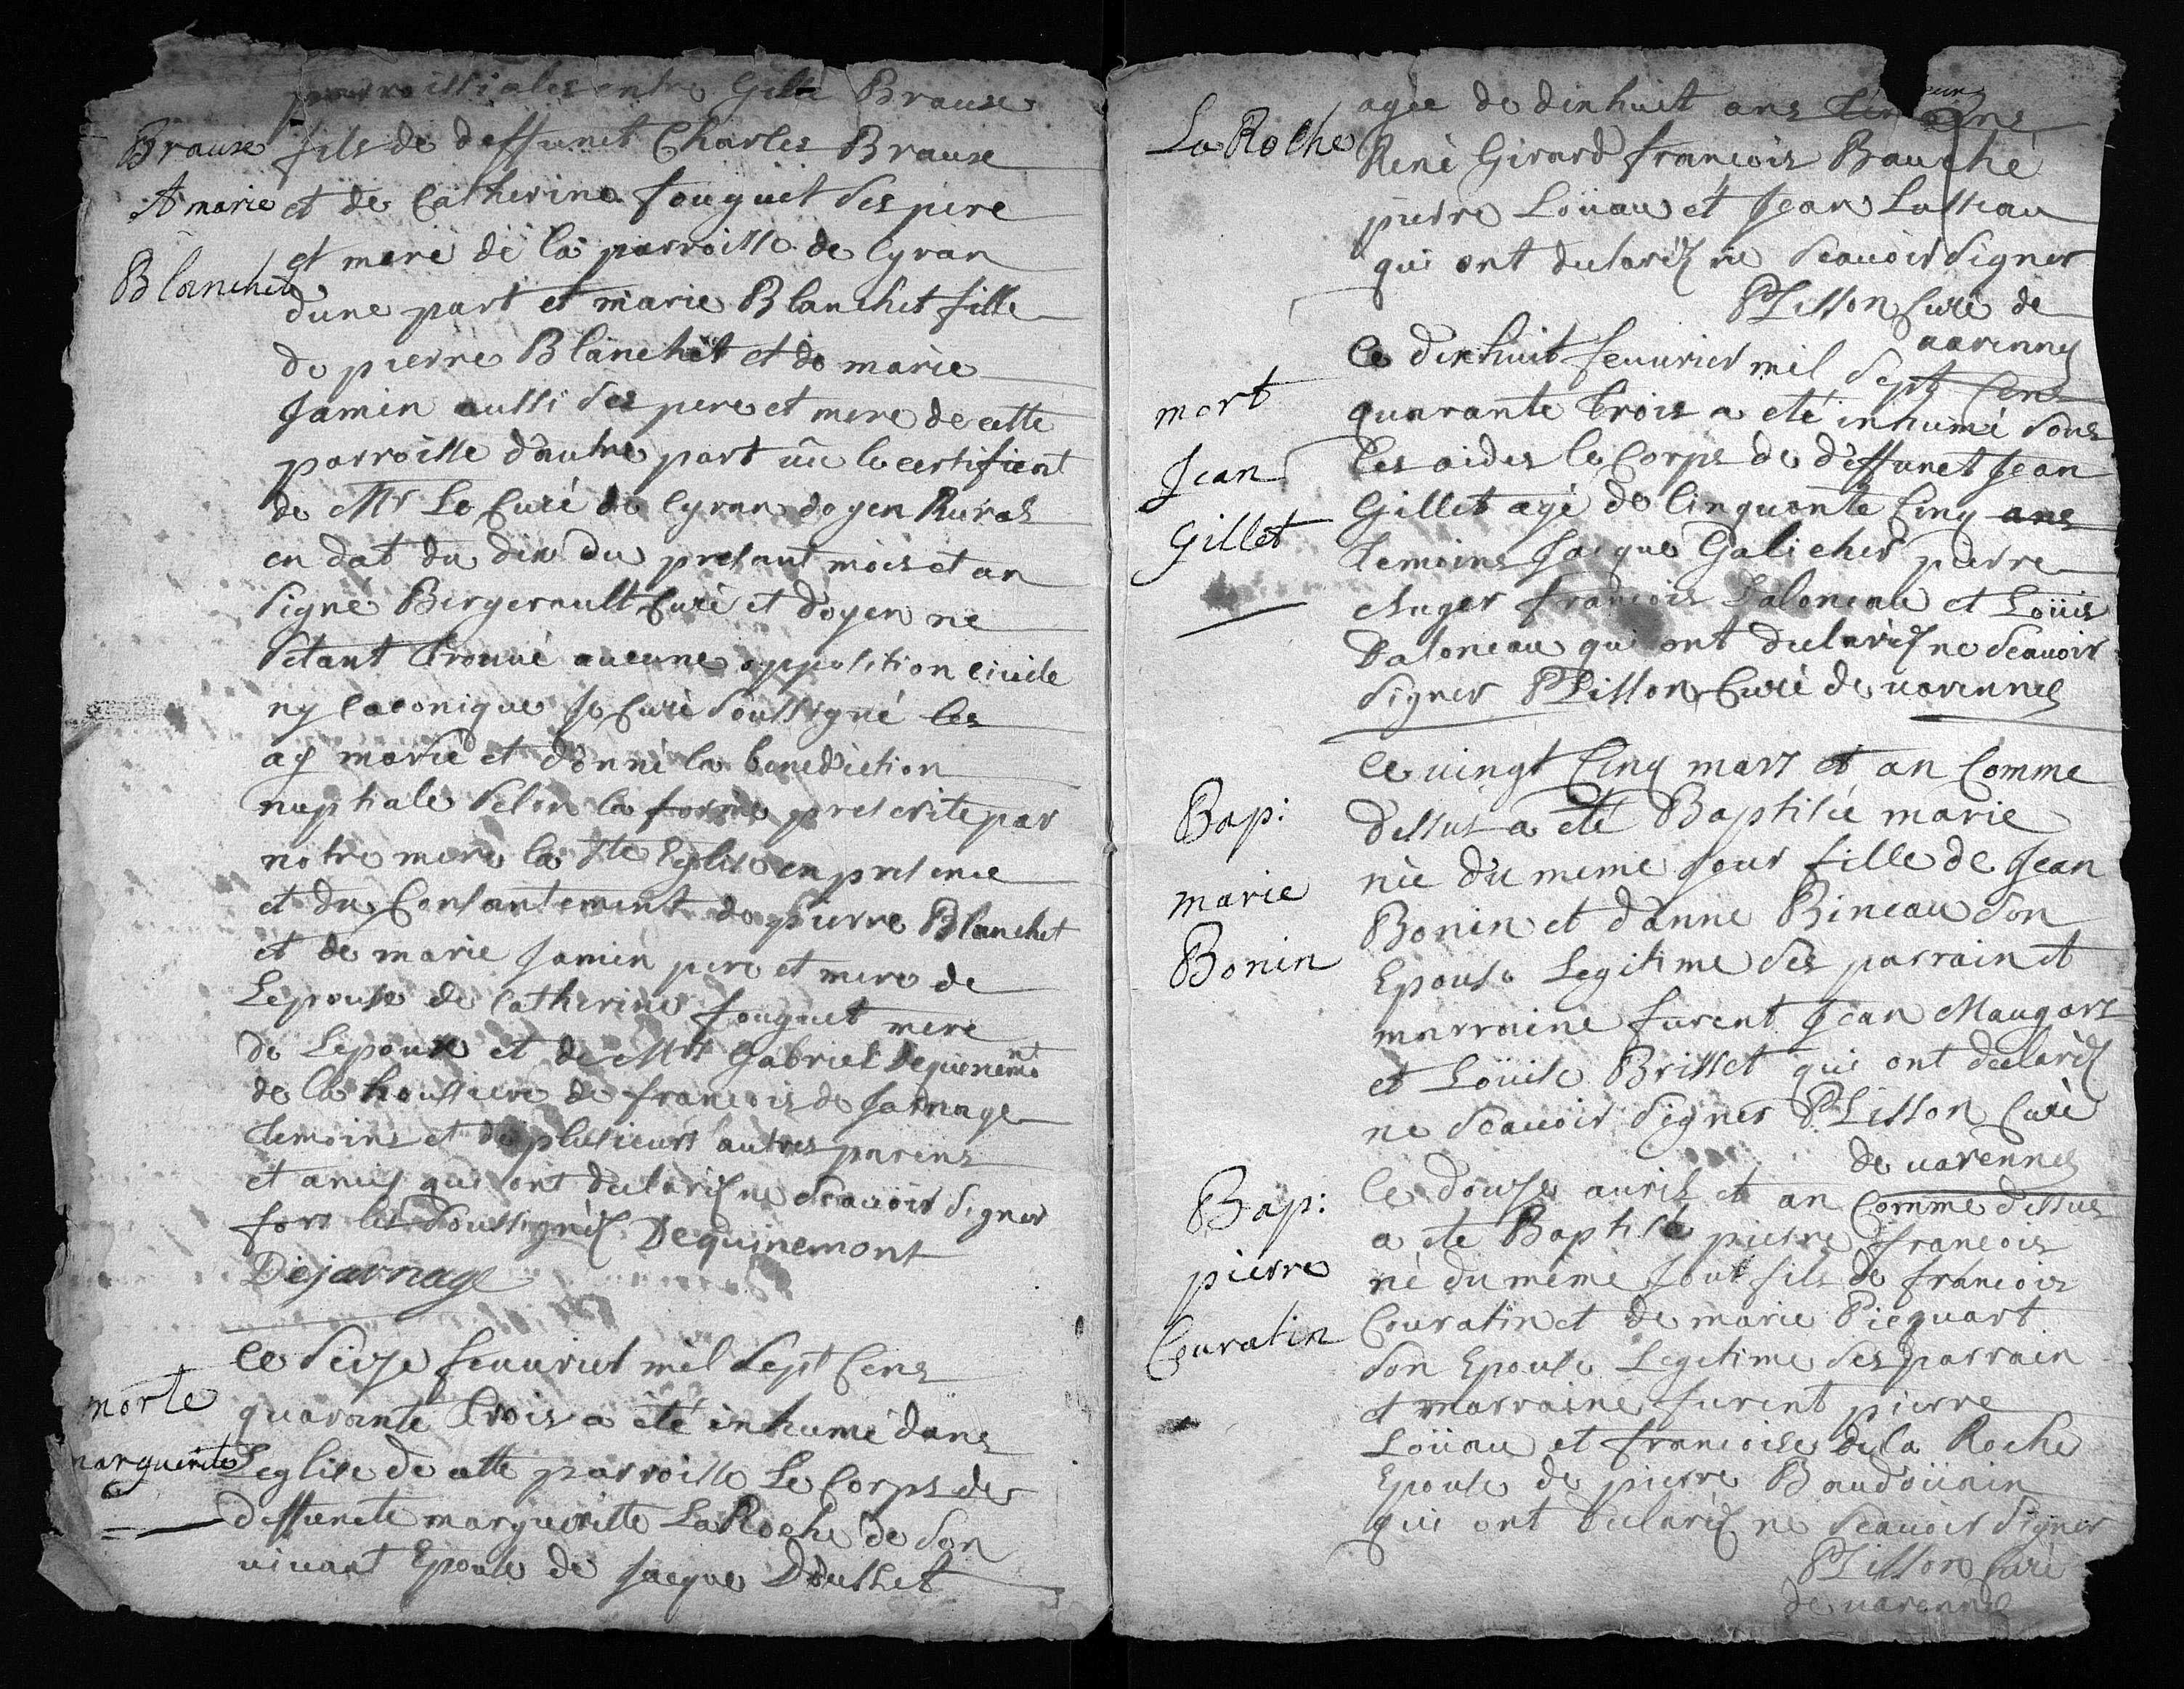 parroissiales entre Gille Brause
Brause
fils de deffunct Charles Brause
A marie
et de Catherine fouquet ses pere
et mere de la parroisse de Cyran
Blanchet
dune part et marie Blanchet fille
de pierre Blanchet et de marie
Jamin aussi ses pere et mere de cette
parroisse dautre part vû le certifient
de Mr Le Curé de Cyran doyen Rural
en dat du dix du presant mois et an
signé Bergerault Curé et doyen ne
sétant trouvé aucune opposition civile
ny caconique Je Curé soussigné les
ay marié et donné la benediction
nuptiale selon la forme prescrite par
notre mere la Ste Eglise en presence
et du Consantement de pierre Blanchet
et de marie Jamin pere et mere de
Lepouse de Catherine fouquet mere
de Lepoux et de Mrs Gabriel Dequinemont
de la houssiere de francois de Jarnage
temoins et de plusieurs autres parens
et amis qui ont declarez ne scauoir signer
fors les soussignéz Dequinemont
Dejarnage
ce seize feuurier mil sept Cens
morte
quarante trois a été inhumé dans
marguerite
Leglise de cette parroisse Le Corps de
deffuncte margueritte LaRoche de son
uiuant Epouse de Jacque Dousset
La Roche
agée de dixhuit ans temoins
René Girard francois Bauché
pierre Loüau et Jean Lusseau
qui ont declaréz ne scauoir signer
PLisson Curé de
uarennes
Ce dixhuit feuurier mil sept Cens
mort
quarante trois a eté inhumé sous
Jean
les aides le Corps de deffunct Jean
Gillet
Gillet agé de Cinquante Cinq ans
temoins Jacque Galicher pierre
Auger francois Daloneau et Loüis
Daloneau qui ont declaréz ne scauoir
signer PLisson Curé de uarennes
ce uingt Cinq mars et an Comme
Bap:
dessus a eté Baptisée marie
marie
née du meme Jour fille de Jean
Bonin
Bonin et danne Bineau son
Epouse Legitime ses parrain et
marraine furent Jean Maugars
et Loüise Brisset qui ont declaréz
ne scauoir signer PLisson Curé
de uarennes
Bap:
Ce douze auril et an Comme dessus
a ete Baptisé pierre francois
pierre
né du méme Jour fils de francois
Couratin
Couratin et de marie Picquart
son Epouse Legitime ses parrain
et marraine furent pierre
Loüau et francoise de la Roche
Epouse de pierre Baudoüain
qui ont declaréz ne scauoir signer
PLisson Curé
de uarennes